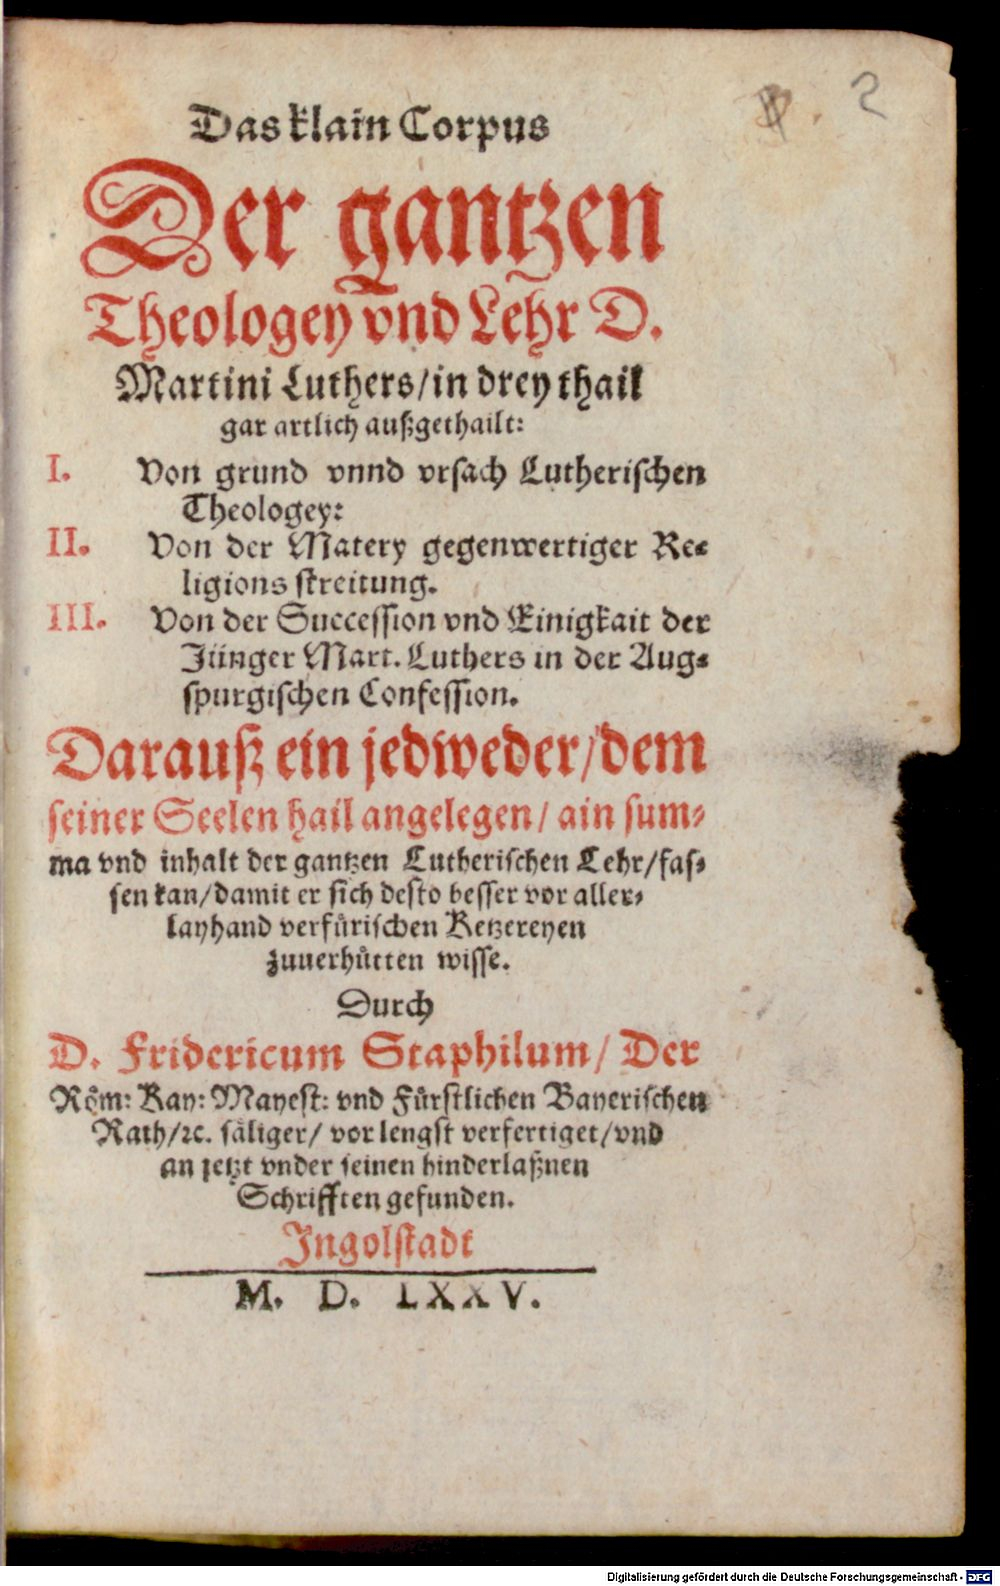 2
Das klain Corpus
Der gantzen
Theologey vnd Lehr D.
Martini Luthers/in drey thail
gar artlich außgethailt:
I. Von grund vnnd vrsach Lutherischen
Theologey:
II. Von der Matery gegenwertiger Re-
ligions streitung.
III. Von der Succession vnd Einigkait der
Jünger Mart. Luthers in der Aug-
spurgischen Confession.
Darauß ein jedweder/dem
seiner Seelen hail angelegen/ ain sum-
ma vnd inhalt der gantzen Lutherischen Lehr/fas-
sen kan/damit er sich desto besser vor aller-
layhand verfůrischen Ketzereyen
zuuerhůtten wisse.
Durch
D. Fridericum Staphilum/ Der
Rőm: Kay: Mayest: vnd Fürstlichen Bayerischen
Rath/ꝛc. säliger/ vor lengst verfertiget/vnd
an jetzt vnder seinen hinderlaßnen
Schrifften gefunden.
Jngolstadt
M. D. LXXV.
Digitalisierung gefördert durch die Deutsche Forschungsgemeinschaft - DFG